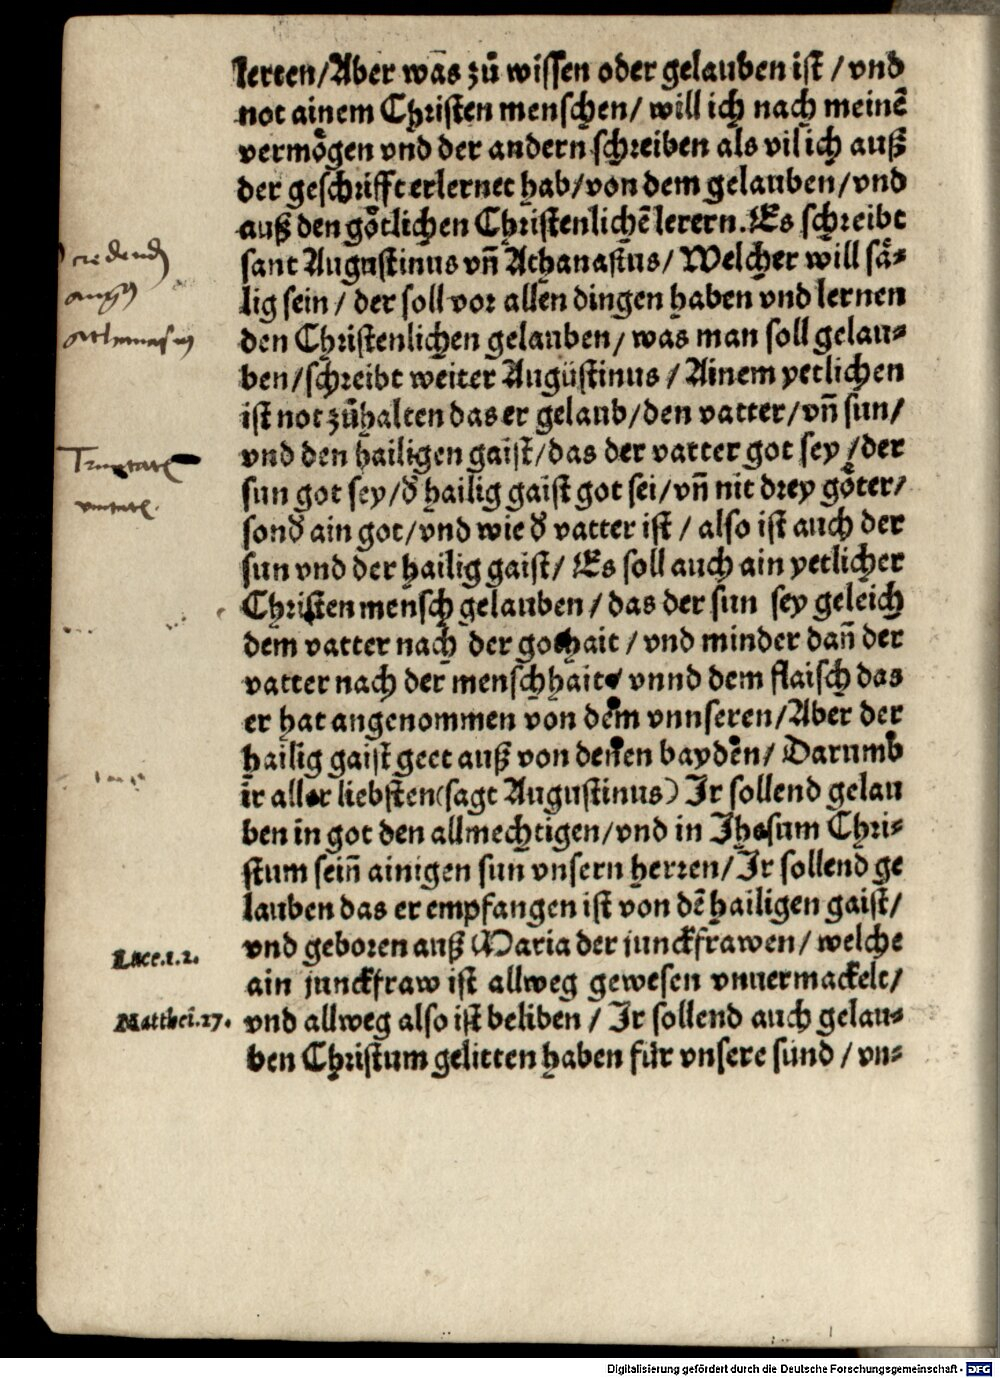 lerten/Aber was zů wissen oder gelauben ist / vnd
not ainem Christen menschen/ will ich nach meinē
vermoͤgen vnd der andern schreiben als vil ich auß
der geschrifft erlernet hab/von dem gelauben/vnd
auß den goͤtlichen Christenlichē lerern. Es schreibt
sant Augustinus vñ Athanasius/ Welcher will saͤ⸗
lig sein / der soll vor allen dingen haben vnd lernen
den Christenlichen gelauben/ was man soll gelau⸗
ben/schreibt weiter Augustinus / Ainem yetlichen
ist not zůhalten das er gelaub/den vatter/vñ sun/
vnd den hailigen gaist/das der vatter got sey /der
sun got sey/đ hailig gaist got sei/vñ nit drey goͤter/
sonđ ain got/vnd wie đ vatter ist / also ist auch der
sun vnd der hailig gaist/ Es soll auch ain yetlicher
Christen mensch gelauben / das der sun sey geleich
dem vatter nach der gothait / vnd minder dañ der
vatter nach der menschhait/ vnnd dem flaisch das
er hat angenommen von dem vnnseren/Aber der
hailig gaist geet auß von denen bayden/ Darumb
ir aller liebsten(sagt Augustinus) Ir sollend gelau
ben in got den allmechtigen/vnd in Jhesum Chri⸗
stum seiñ ainigen sun vnsern herren/Ir sollend ge
lauben das er empfangen ist von dē hailigen gaist/
Luce.1.2. vnd geboren auß Maria der junckfrawen/ welche
ain junckfraw ist allweg gewesen vnuermackelt/
Matthei.27. vnd allweg also ist beliben / Ir sollend auch gelau⸗
ben Christum gelitten haben für vnsere sünd / vn⸗
Digitalisierung gefördert durch die Deutsche Forschungsgemeinschaft - DFG